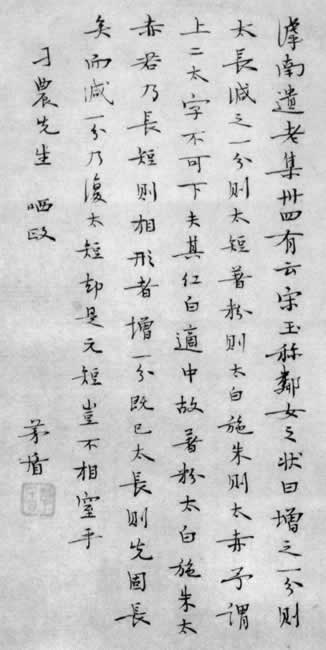 滹南遺老集卅四有云宋玉称鄰女之狀曰增之一分則
太長减之一分則太短著粉則太白施朱則太赤予謂
上二太字不可下夫其仁白適中故著粉太白施朱太
赤若乃長短則相形者增一分既已太長則先固長
矣而减一分乃復太短却是元短豈不相窒乎
刁農先生 哂政
茅盾